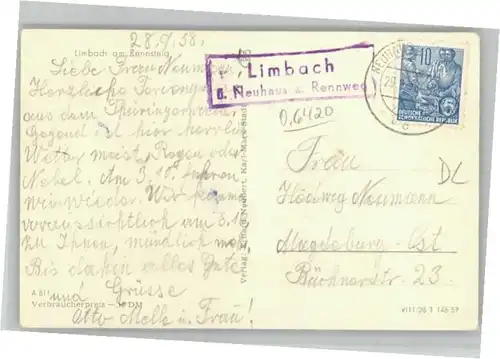 28.9.58.
Limbach am Rennsteig
Liebe Frau Neumann,
Herzliche Feriengrüße
aus dem Thüringerwald.
Gegend ist hier herrlich
Wetter meist Regen oder
Nebel. Am 3.10. fahren
wir wieder. Wir kommen
voraussichtlich am 3.10
zu Ihnen, mündlich mehr
Bis dahin alles Gute
und Grüsse
Otto Melle u. Frau!
A 811
Verbraucherpreis DM
Verlag Karl-Marx-Stadt
Limbach
ü. Neuhaus a. Rennweg
NEUHAUS
29
10
DEUTSCHE
DEMOKRATISCHE REPUBLIK
0,6420
DL
Frau
Hedwig Neumann
Magdeburg-Ost
Büchnerstr. 23.